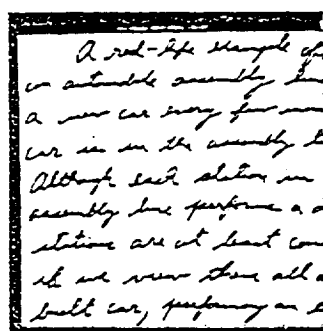 A real-life example of
an automobile assembly line
a new car every few
car is in the assembly
Although each station in
assembly line performs a
stations are at least
if we view them all
built car, performing an